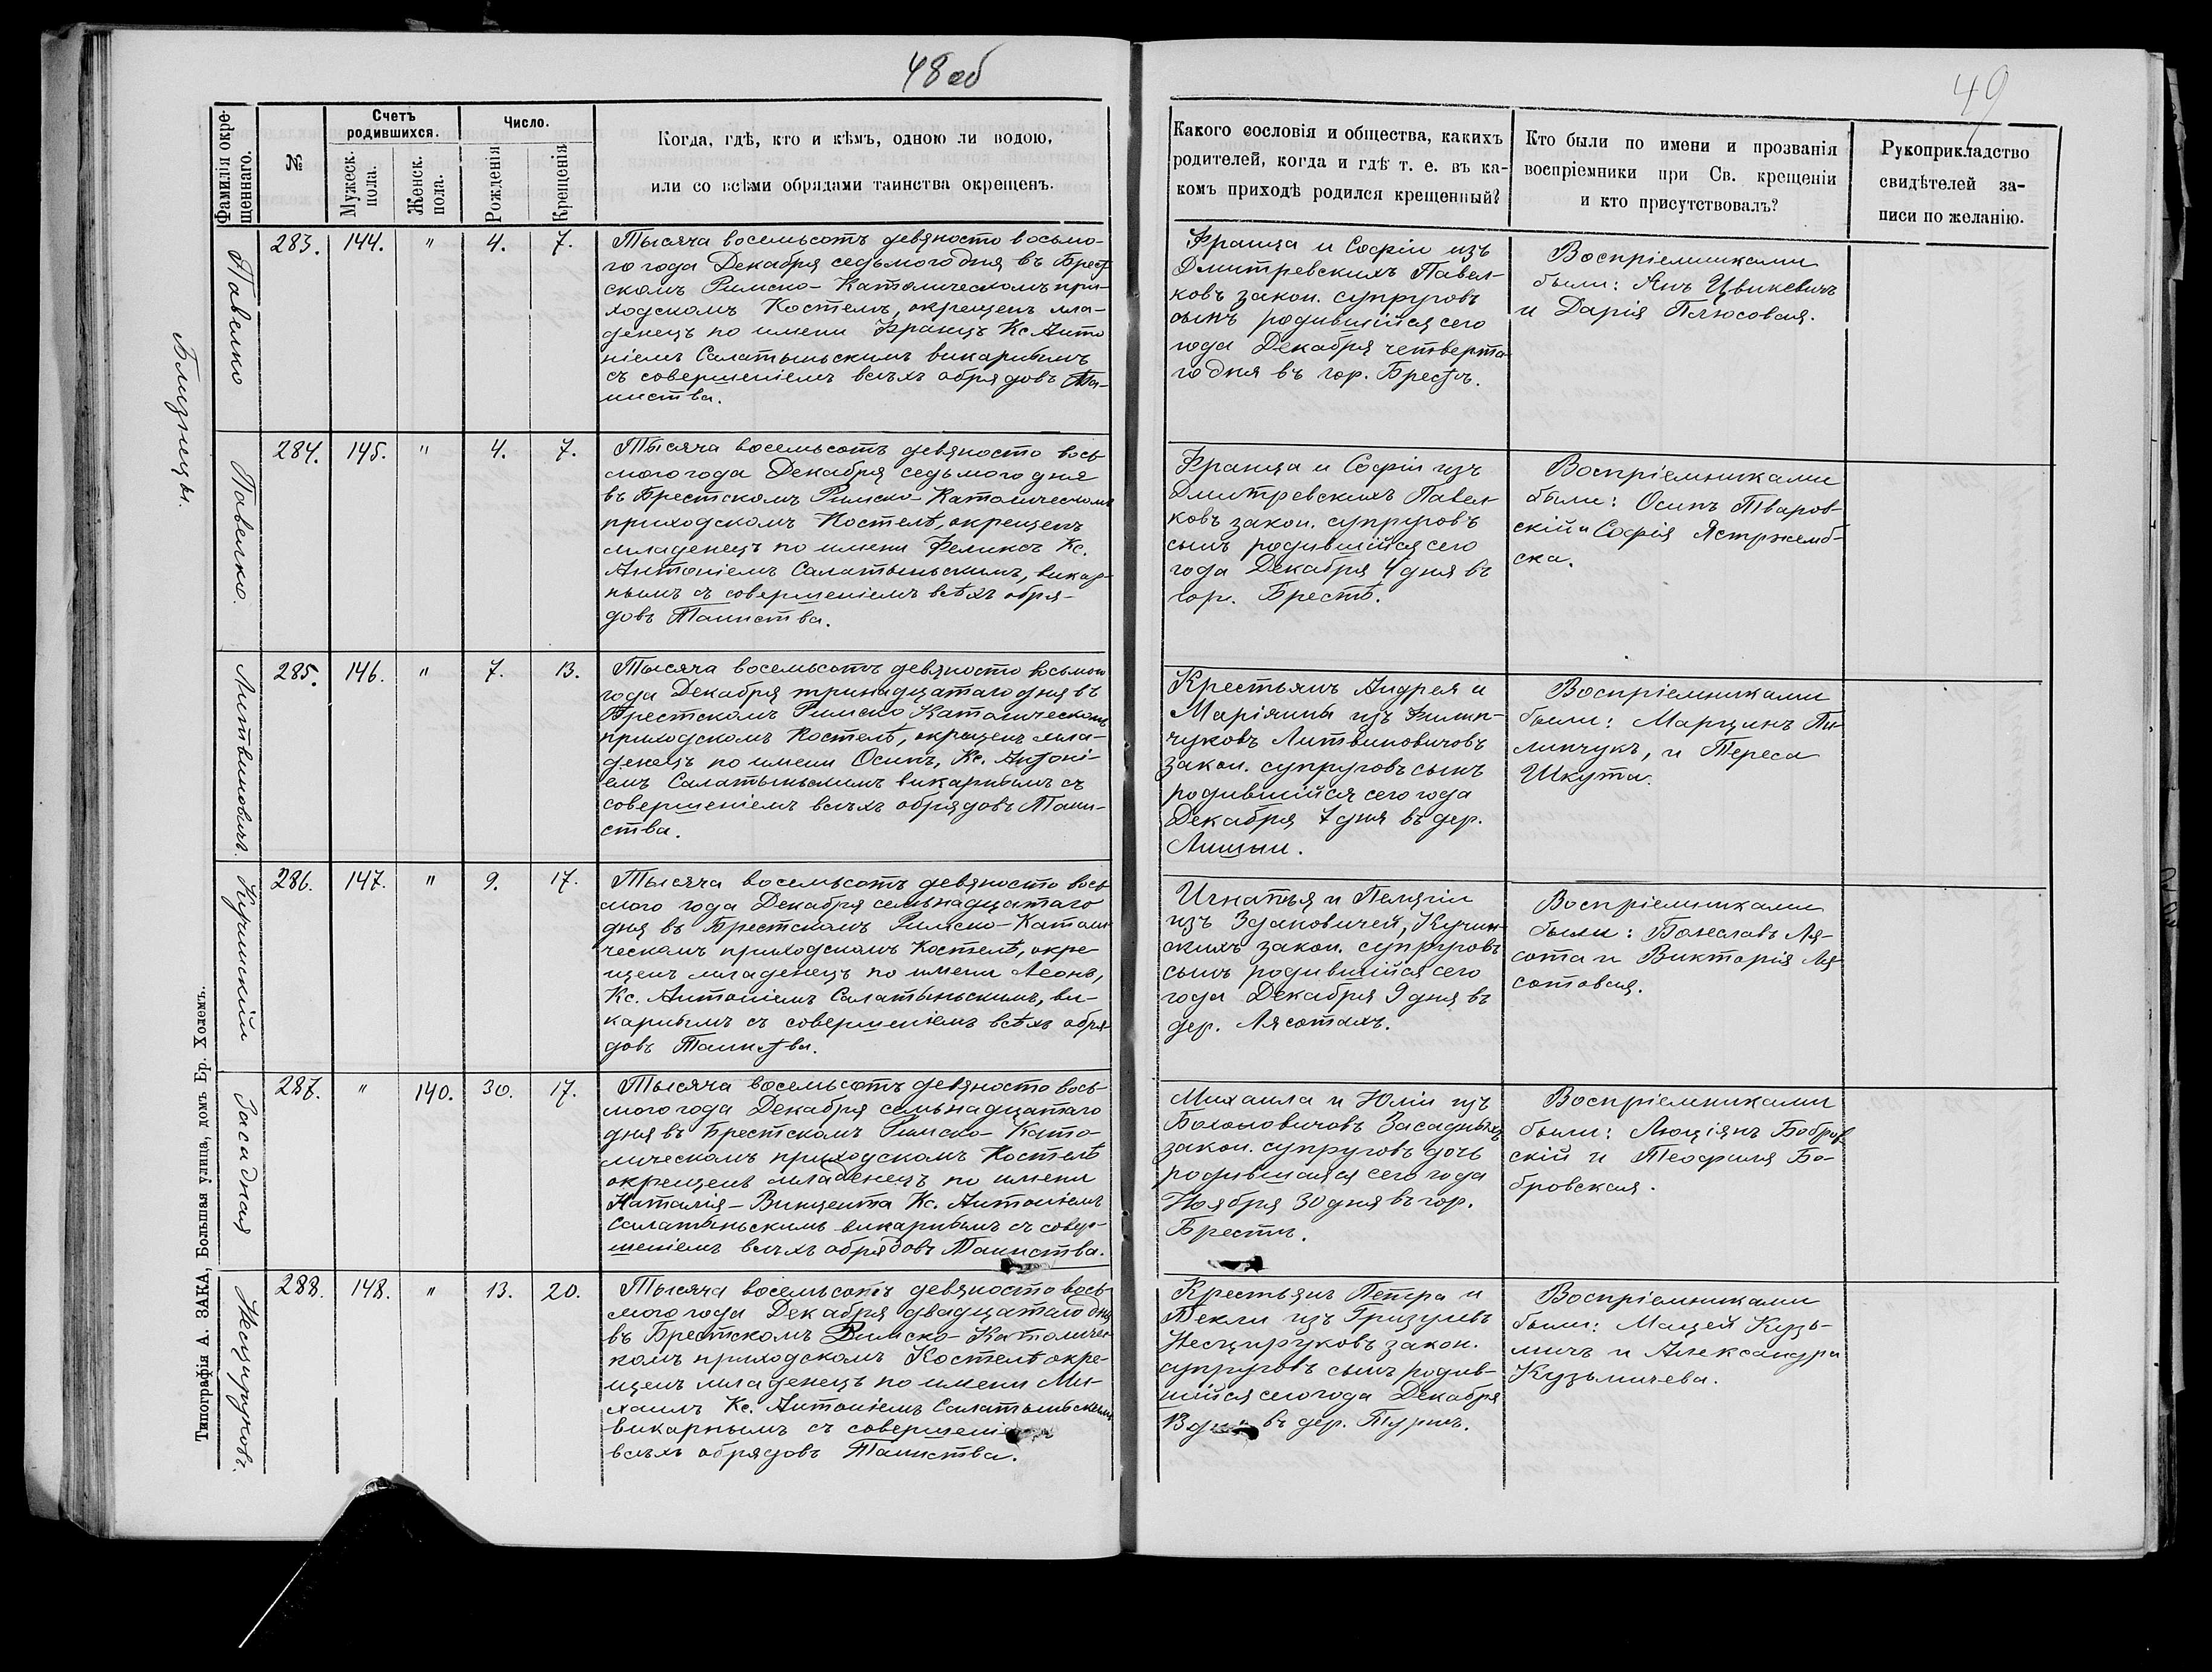 48 об
49
Фамилія окре-
щеннаго.
№
Счетъ
родившихся.
Мужеск.
пола.
Женск.
пола.
Число.
Рожденія
Крещенія
Когда, гдѣ, кто и кѣмъ, одною ли водою,
или со всѣми обрядами таинства окрещенъ.
Какого сословія и общества, какихъ
родителей, когда и гдѣ т. е. въ ка-
комъ приходѣ родился крещенный?
Кто были по имени и прозванія
воспріемники при Св. крещеніи
и кто присутствовалъ?
Рукоприкладство
свидѣтелей за-
писи по желанію.
Близнецы.
Павелко
283. 144. " 4. 7.
Тысяча восемьсотъ девяносто восьмо-
го года Декабря седьмого дня въ Брест
скомъ Римско-Католическомъ при-
ходскомъ Костелѣ, окрещенъ мла-
денецъ по имени Францъ Кс Анто
ніемъ Салатыньскимъ викарнымъ
съ совершеніемъ всѣхъ обрядовъ Та-
инства.
Франца и Софіи изъ
Дмитревскихъ Павел-
ковъ закон. супруговъ
сынъ родившійся сего
года Декабря четверта
го дня въ гор. Брестѣ.
Воспріемниками
были: Янъ Цвикевичъ
и Дарія Полюсовая.
Павелко.
284. 145. " 4. 7.
Тысяча восемьсотъ девяносто вось
мого года Декабря седьмого дня
въ Брестскомъ Римско-Католическомъ
приходскомъ Костелѣ, окрещенъ
младенецъ по имени Феликсъ Кс.
Антоніемъ Салатыньскимъ, викар-
нымъ съ совершеніемъ всѣхъ обря-
довъ Таинства.
Франца и Софіи изъ
Дмитревскихъ Павел
ковъ закон. супруговъ
сынъ родившійся сего
года Декабря 4 дня въ
гор. Брестѣ.
Воспріемниками
были: Осипъ Тваров-
скій и Софія Ястржемб-
ска.
Литвиновичъ.
285. 146. " 7. 13.
Тысяча восемьсотъ девяносто восьмого
года Декабря тринадцатаго дня въ
Брестскомъ Римско Католическомъ
приходскомъ Костелѣ, окрещенъ мла-
денецъ по имени Осипъ, Кс. Антоні-
емъ Салатыньскимъ викарнымъ съ
совершеніемъ всѣхъ обрядовъ Таин-
ства.
Крестьянъ Андрея и
Маріянны изъ Филип-
чуковъ Литвиновичовъ
закон. супруговъ сынъ
родившійся сего года
Декабря 7 дня въ дер.
Лищыц.
Воспріемниками
были: Марцинъ Пи-
липчукъ, и Тереса
Шкута.
Кучинскій
286. 147. " 9. 17.
Тысяча восемьсотъ девяносто вось
мого года Декабря семьнадцатаго
дня въ Брестскомъ Римско-Католи
ческомъ приходскомъ Костелѣ, окре
щенъ младенецъ по имени Леонъ,
Кс. Антоніемъ Салатыньскимъ, ви-
карнымъ съ совершеніемъ всѣхъ обря
довъ Таинства.
Игнатья и Пелягіи
изъ Здановичей, Кучин-
скихъ закон. супруговъ
сынъ родившійся сего
года Декабря 9 дня въ
дер. Лясотахъ.
Воспріемниками
были: Болеславъ Ля-
сота и Викторія Ля
сотовая.
Засадная
287. " 140. 30. 17.
Тысяча восемьсотъ девяносто вось-
мого года Декабря семьнадцатаго
дня въ Брестскомъ Римско-Като-
лическомъ приходскомъ Костелѣ
окрещенъ младенецъ по имени
Наталія-Винцента Кс. Антоніемъ
Салатыньскимъ викарнымъ съ совер-
шеніемъ всѣхъ обрядовъ Таинства.
Михаила и Юліи изъ
Бохоловичовъ Засадныхъ
закон. супруговъ дочь
родившаяся сего года
Ноября 30 дня въ гор.
Брестѣ.
Воспріемниками
были: Люціянъ Бобров
скій и Теофиля Бо-
бровская.
Несцируковъ.
288. 148. " 13. 20.
Тысяча восемьсотъ девяносто вось-
мого года Декабря двадцатаго дня
въ Брестскомъ Римско-Католичес
комъ приходскомъ Костелѣ окре-
щенъ младенецъ по имени Ми-
хаилъ Кс. Антоніемъ Салатыньскимъ
викарнымъ съ совершені
всѣхъ обрядовъ Таинства.
Крестьянъ Петра и
Текли изъ Гризулевъ
Несцируковъ закон.
супруговъ сынъ родив-
шійся сего года Декабря
13 дня въ дер. Турнѣ.
Воспріемниками
были: Мацей Кузь-
мичъ и Александра
Кузьмичева.
Типографія А. ЗАКА, Большая улица, домъ Ер. Холемъ.